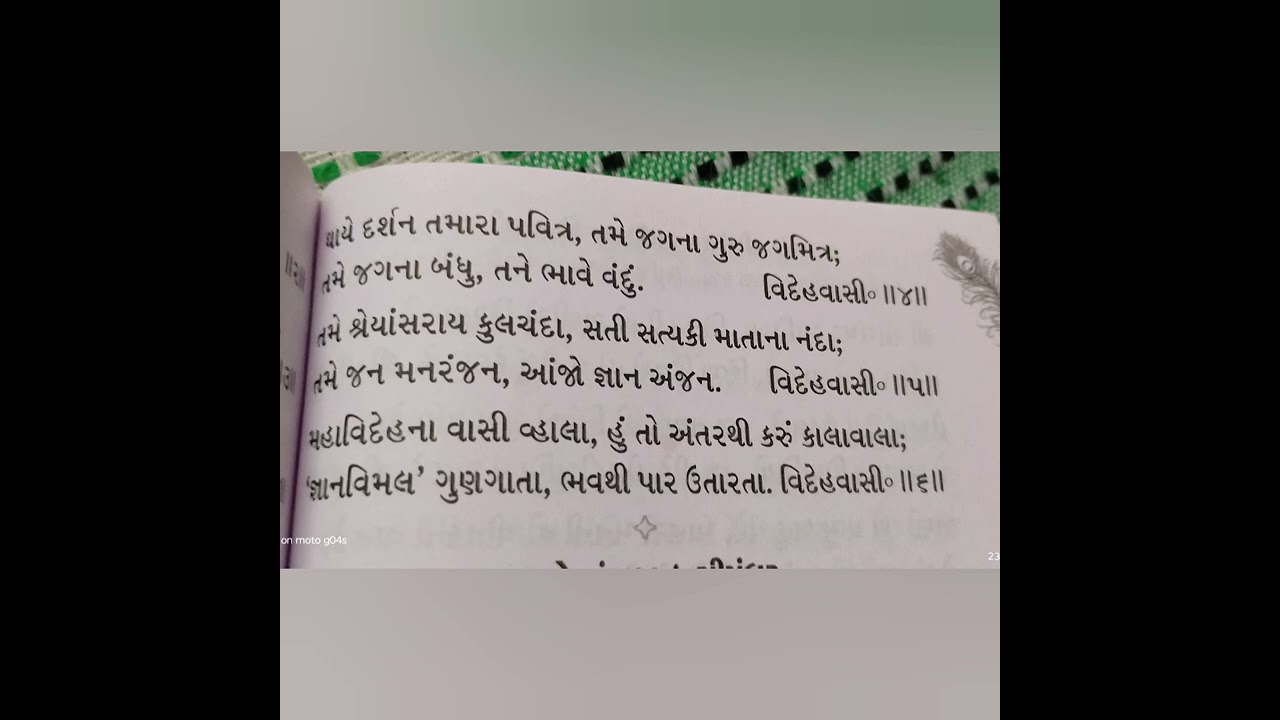 થાયે દર્શન તમારા પવિત્ર, તમે જગના ગુરુ જગમિત્ર;
તમે જગના બંધુ, તને ભાવે વંદું. વિદેહવાસી૰ ॥૪॥
તમે શ્રેયાંસરાય કુલચંદા, સતી સત્યકી માતાના નંદા;
તમે જન મનરંજન, આંજો જ્ઞાન અંજન. વિદેહવાસી૰ ॥૫॥
મહાવિદેહના વાસી વ્હાલા, હું તો અંતરથી કરું કાલાવાલા;
‘જ્ઞાનવિમલ’ ગુણગાતા, ભવથી પાર ઉતારતા. વિદેહવાસી૰ ॥૬॥
on moto g04s
23